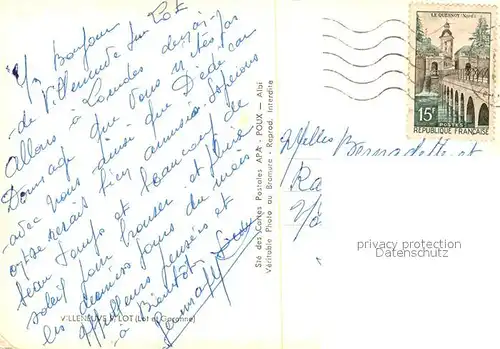 Un Bonjour
de Villeneuve sur Lot
Allons à Lourdes
Dommage que vous n'êtes pas
avec nous ainsi que Dédé car
on se serait bien amusé. Espérons
beau temps et beaucoup de
soleil pour bronzer
les derniers jours du mois
Meilleures pensées et
à Bientôt
VILLENEUVE S/LOT (Lot et Garonne)
Sté des Cartes Postales APA - POUX — Albi
Véritable Photo au Bromure - Reprod. Interdite
LE QUESNOY (Nord)
15F
POSTES
RÉPUBLIQUE FRANÇAISE
Melles Bernadette et
privacy protection
Datenschutz